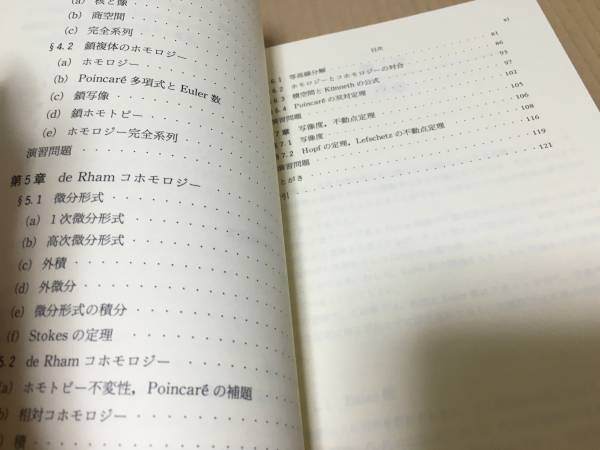 (a) 核と像
(b) 商空間
(c) 完全系列
§4.2 鎖複体のホモロジー
(a) ホモロジー
(b) Poincaré 多項式と Euler 数
(c) 鎖写像
(d) 鎖ホモトピー
(e) ホモロジー完全系列
演習問題
第5章 de Rham コホモロジー
§5.1 微分形式
(a) 1次微分形式
(b) 高次微分形式
(c) 外積
(d) 外微分
(e) 微分形式の積分
(f) Stokes の定理
5.2 de Rham コホモロジー
(a) ホモトピー不変性，Poincaré の補題
b) 相対コホモロジー
) 積
目次 xi
6.1 等高線分解 81
6.2 ホモロジーとコホモロジーの対合 86
6.3 積空間と Künneth の公式 95
6.4 Poincaré の双対定理 97
演習問題 102
7章 写像度，不動点定理 105
§7.1 写像度 106
7.2 Hopf の定理，Lefschetz の不動点定理 108
演習問題 116
とがき 119
引 121